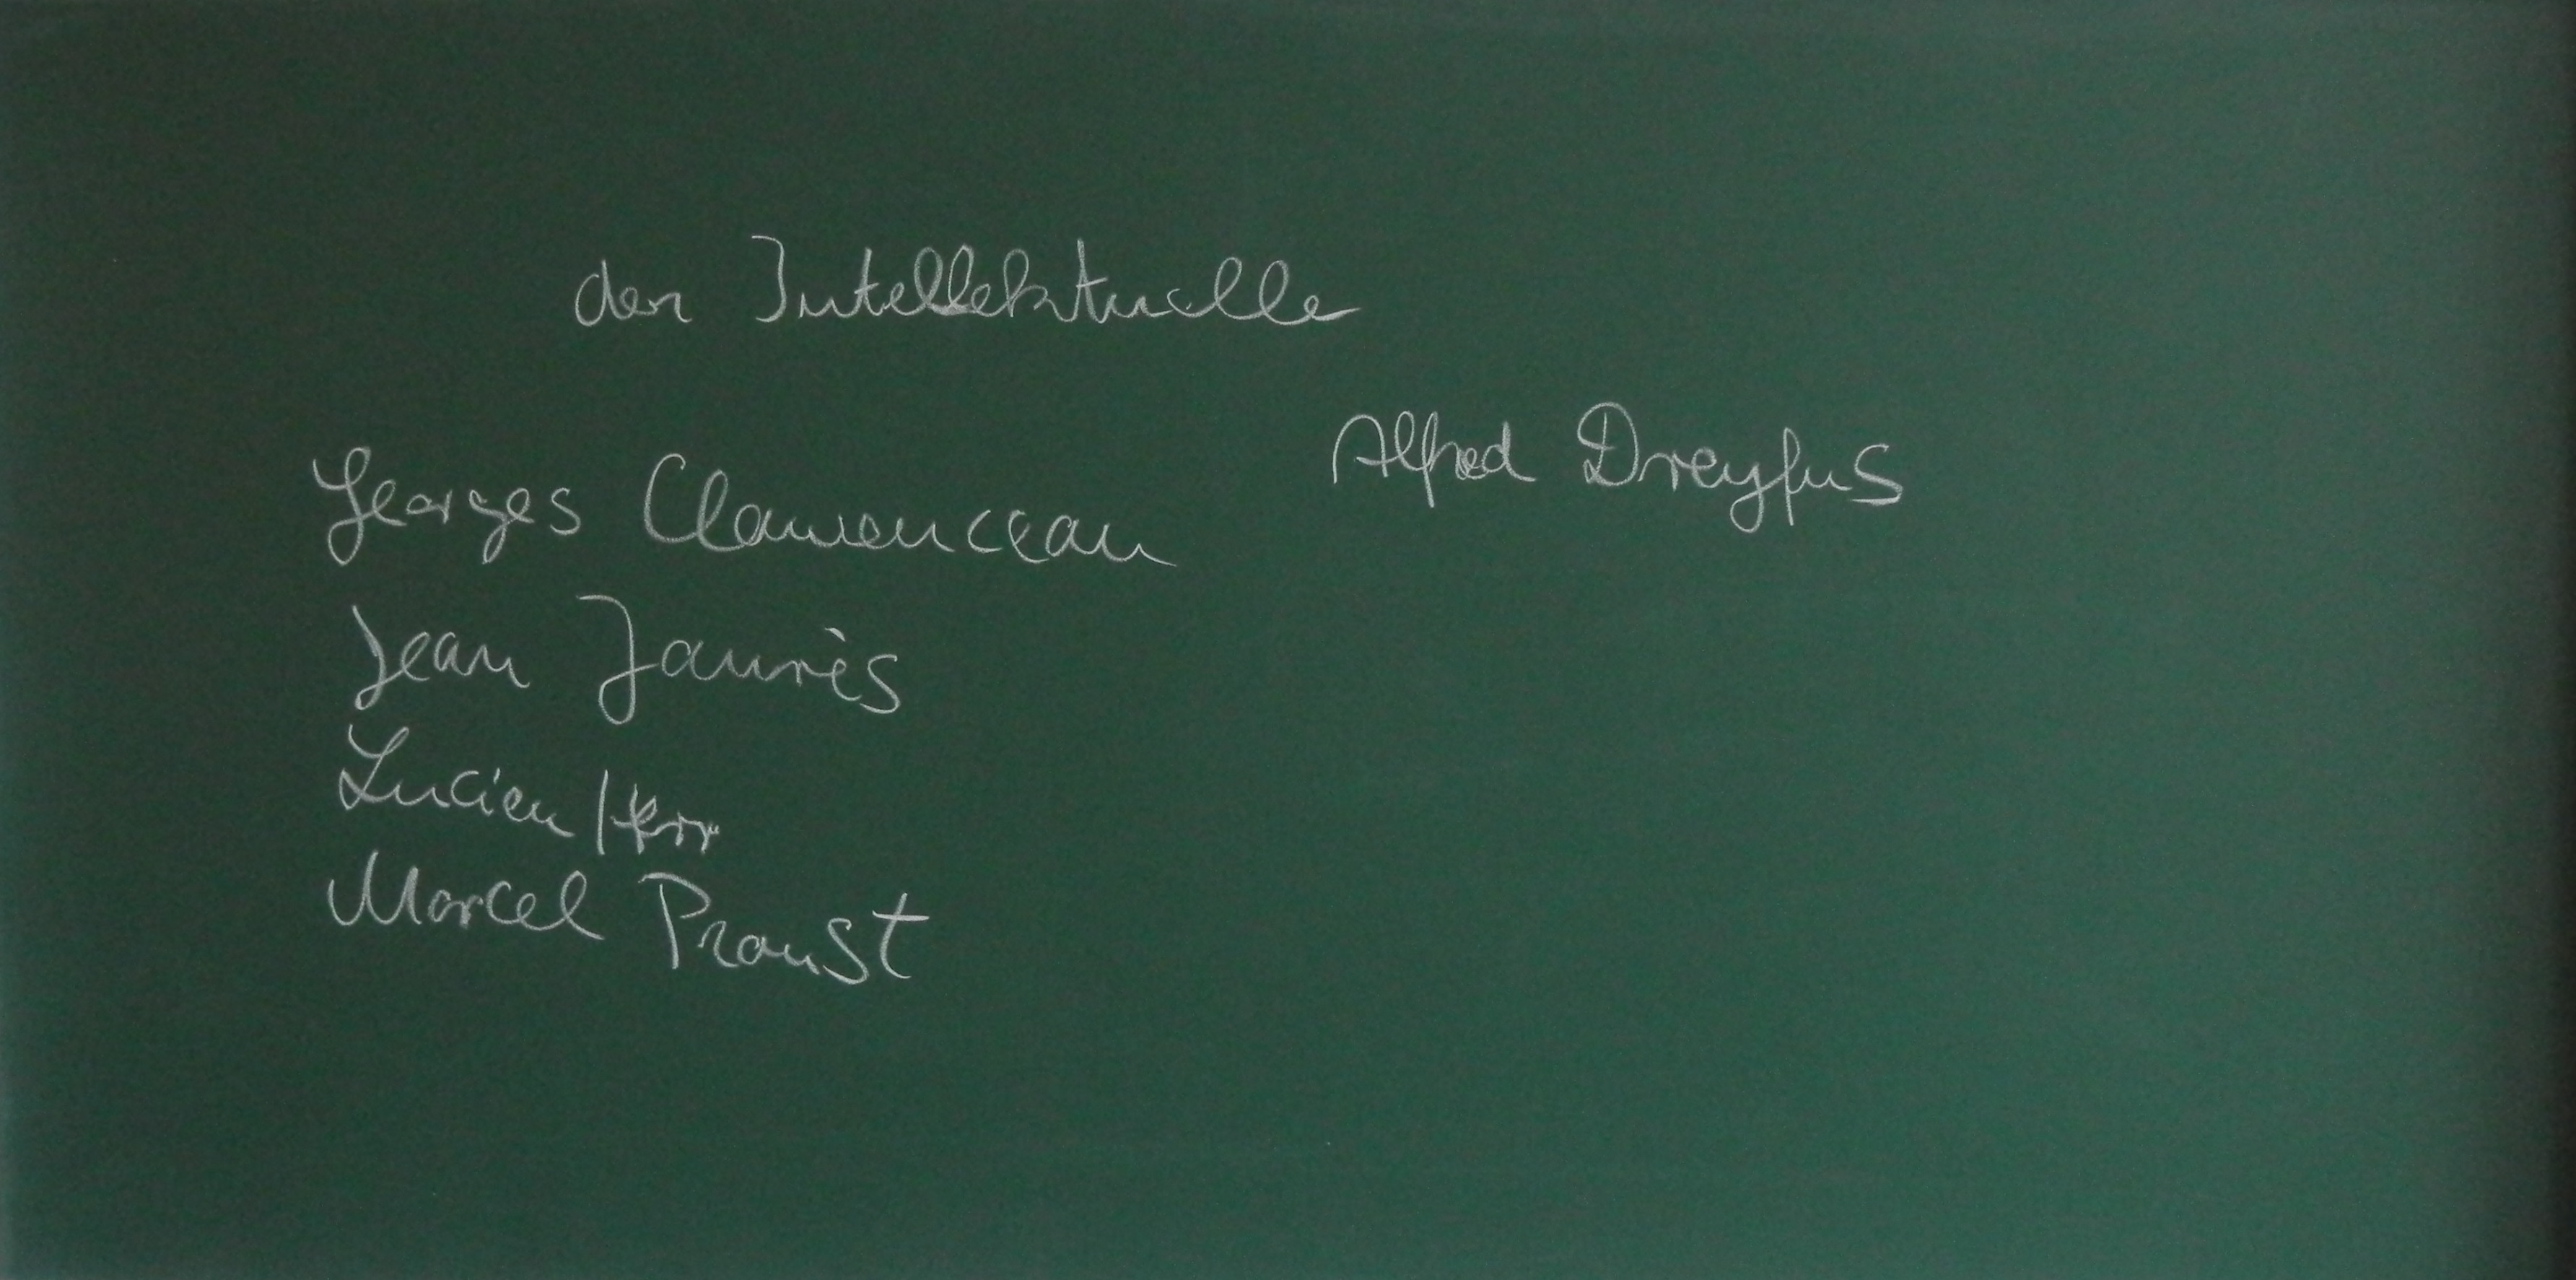 der Intellektuelle
Alfred Dreyfus
Georges Clemenceau
Jean Jaurès
Lucien Herr
Marcel Proust